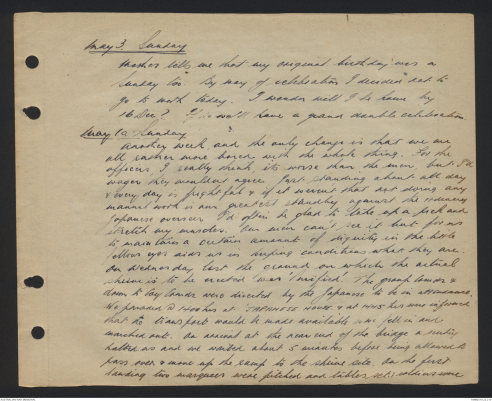 May 3. Sunday
Mother tells me that my original birthday was a
Sunday too. By way of celebration I decided not to
go to work today. I wonder will I be home by
16 Dec? If so we'll have a grand double celebration.
May 10 Sunday
Another week and the only change is that we are
all rather more bored with the whole thing. For the
officers I really think its worse than the men but I'll
wager they wouldn't agree. Just standing about all day
& every day is frightful & if it weren't that not doing any
manual work is our greatest standby against the ordinary
Japanese overseer I'd often be glad to take up a pick and
stretch my muscles. Our men can't see it but for us
to maintain a certain amount of dignity in the little
fellows eyes aids us in keeping conditions what they are.
On Wednesday last the ground on which the actual
shrine is to be erected was "purified". The group leaders &
down to Coy Comds were directed by the Japanese to be in attendance.
We paraded at House & at hrs were informed
that no transport would be made available so we fell in and
marched out. On arrival at the near end of the bridge a sentry
halted us and we waited about 5 minutes before being allowed to
pass over & move up the ramp to the shrine site. On the first
landing two marquees were pitched and tables, soldiers were